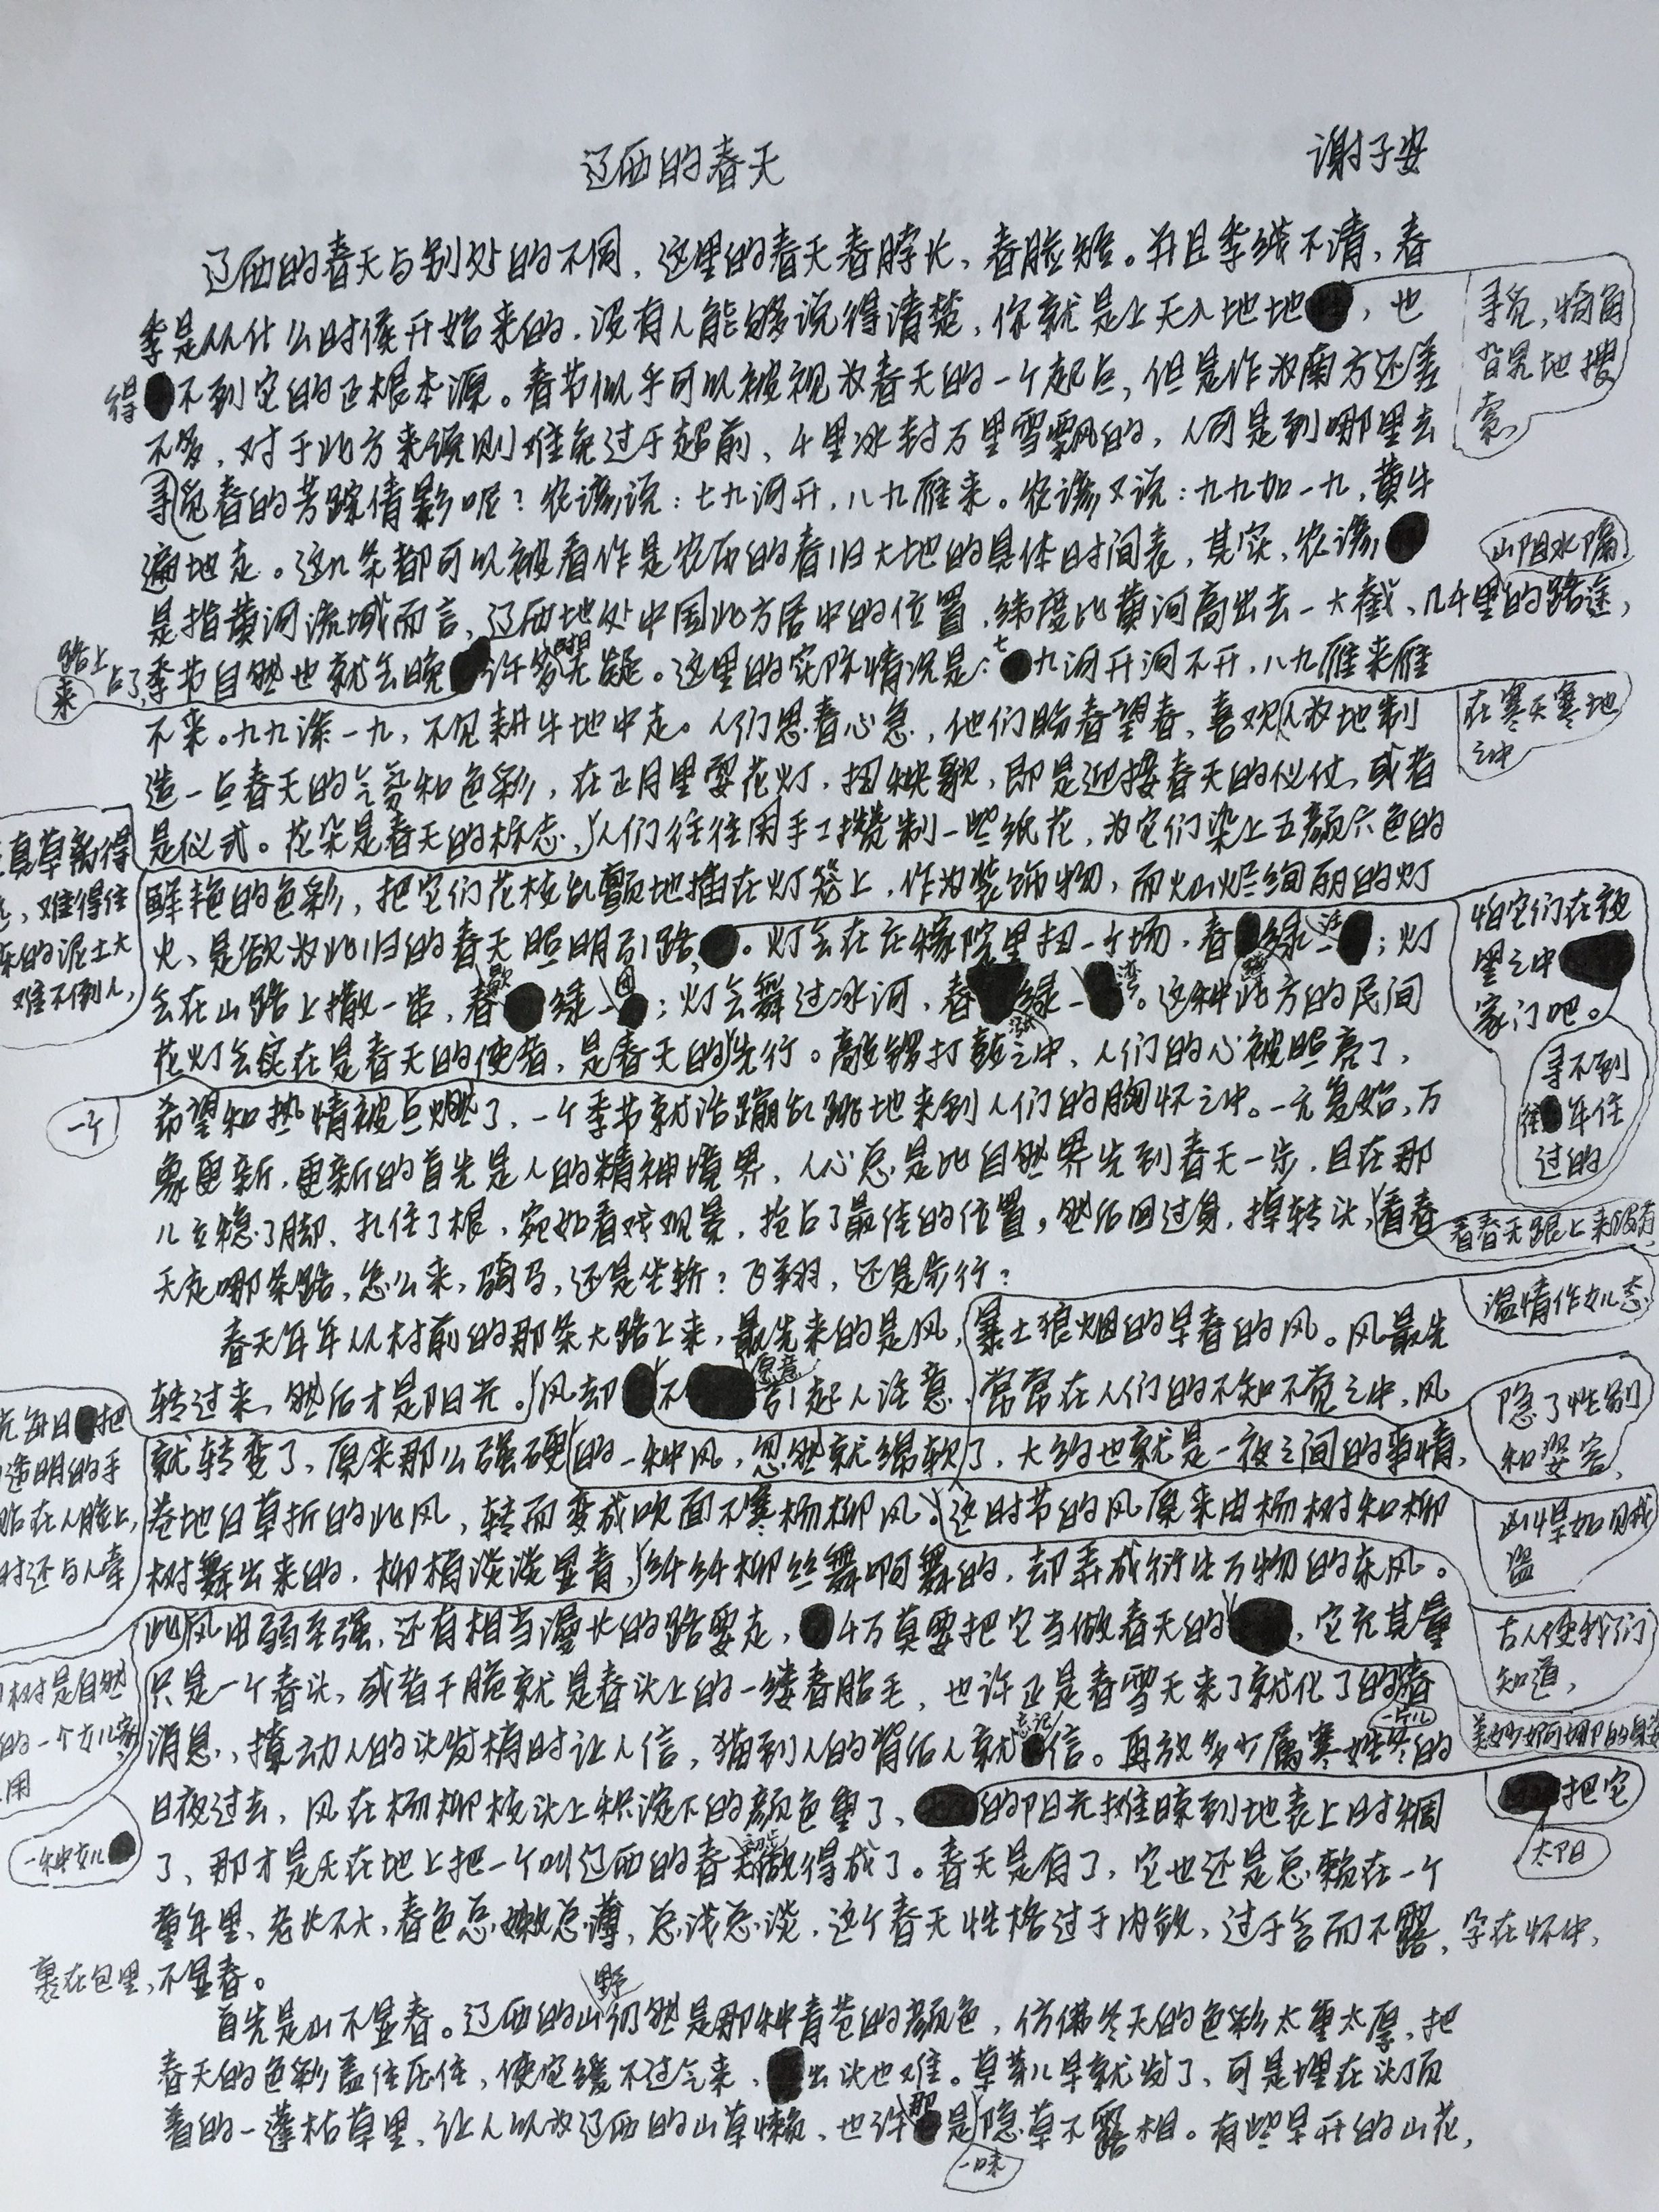 辽西的春天
谢子安
辽西的春天与别处的不同，这里的春天春脖长，春脸短。并且季线不清，春
季是从什么时候开始来的，没有人能够说得清楚，你就是上天入地地，也
得不到它的正根本源。春节似乎可以被视为春天的一个起点，但是作为南方还差
不多，对于北方来说则难免过于超前，千里冰封万里雪飘的，人可是到哪里去
寻觅春的芳踪倩影呢？农谚说：七九河开，八九雁来。农谚又说：九九加一九，黄牛
遍地走。这几条都可以被看作是农历的春归大地的具体时间表，其实，农谚
是指黄河流域而言，辽西地处中国北方居中的位置，纬度比黄河高出去一大截、几千里的路途，
季节自然也就会晚许多无疑。这里的实际情况是：七九河开河不开，八九雁来雁
不来。九九添一九，不见耕牛地中走。人们思春心急，他们盼春望春，喜欢人为地制
造一点春天的气氛和色彩，在正月里耍花灯，扭秧歌，即是迎接春天的仪仗，或者
是仪式。花朵是春天的标志，人们往往用手工攒制一些纸花，为它们染上五颜六色的
鲜艳的色彩，把它们花枝乱颤地插在灯笼上，作为装饰物，而灿烂绚丽的灯
火、是欲为北归的春天照明引路。灯会在庄稼院里扭一个场，春绿一；灯
会在山路上撒一串，春绿一；灯会舞过冰河，春绿一湾。这种北方的民间
花灯会实在是春天的使者，是春天的先行。敲锣打鼓之中，人们的心被照亮了，
希望和热情被点燃了，一个季节就活蹦乱跳地来到人们的胸怀之中。一元复始，万
象更新，更新的首先是人的精神境界，人心总是比自然界先到春天一步，且在那
儿立稳了脚、扎住了根，宛如看戏观景，抢占了最佳的位置，然后回过身，掉转头，看春
天走哪条路，怎么来，骑马，还是坐轿？飞翔，还是步行？
春天年年从村前的那条大路上来，最先来的是风，暴土狼烟的早春的风。风最先
转过来，然后才是阳光。风却不愿意引起人注意，常常在人们的不知不觉之中，风
就转变了，原来那么强硬的一种风，忽然就绵软了，大约也就是一夜之间的事情，
卷地白草折的北风，转而变成吹面不寒杨柳风。这时节的风原来由杨树和柳
树舞出来的，柳梢淡淡显青，纤纤柳丝舞啊舞的，却弄成衍生万物的东风。
此风由弱至强，还有相当漫长的路要走，千万莫要把它当做春天的，它充其量
只是一个春头，或者干脆就是春头上的一缕春胎毛，也许正是春雪天来了就化了的春
消息，撩动人的头发梢时让人信，猫到人的背后人就忘记信。再放多少属寒姓冬的
日夜过去，风在杨柳枝头上积淀下的颜色重了，的阳光堆晾到地表上时稠
了，那才是天在地上把一个叫辽西的春天做得成了。春天是有了，它也还是总赖在一个
童年里，老长不大，春色总嫩总薄，总浅总淡，这个春天性格过于内敛，过于含而不露，孕在怀中，
裹在包里，不显春。
首先是山不显春。辽西的山野仍然是那种青苍的颜色，仿佛冬天的色彩太重太厚，把
春天的色彩盖住压住，使它缓不过气来，出头也难。草芽儿早就发了，可是埋在头顶
着的一蓬枯草里，让人以为辽西的山草懒，也许那是隐草不露相。有些早开的山花，
一味
寻觅，犄角
旮旯地搜
索，
山阻水隔
在寒天寒地
之中
怕它们在夜
里之中
家门吧。
寻不到
往年住
过的
看春天跟上来没有
温情作女儿态
隐了性别
和姿容，
凶悍如贼
盗
古人使我们
知道，
美妙婀娜的身姿
把它
太阳
路上
来
占了
真草勒得
，难得住
的泥土大
难不倒人，
一个
光每日把
透明的手
贴在人脸上，
时还与人牵
树是自然
的一个女儿家，
用
一种女儿
一片儿